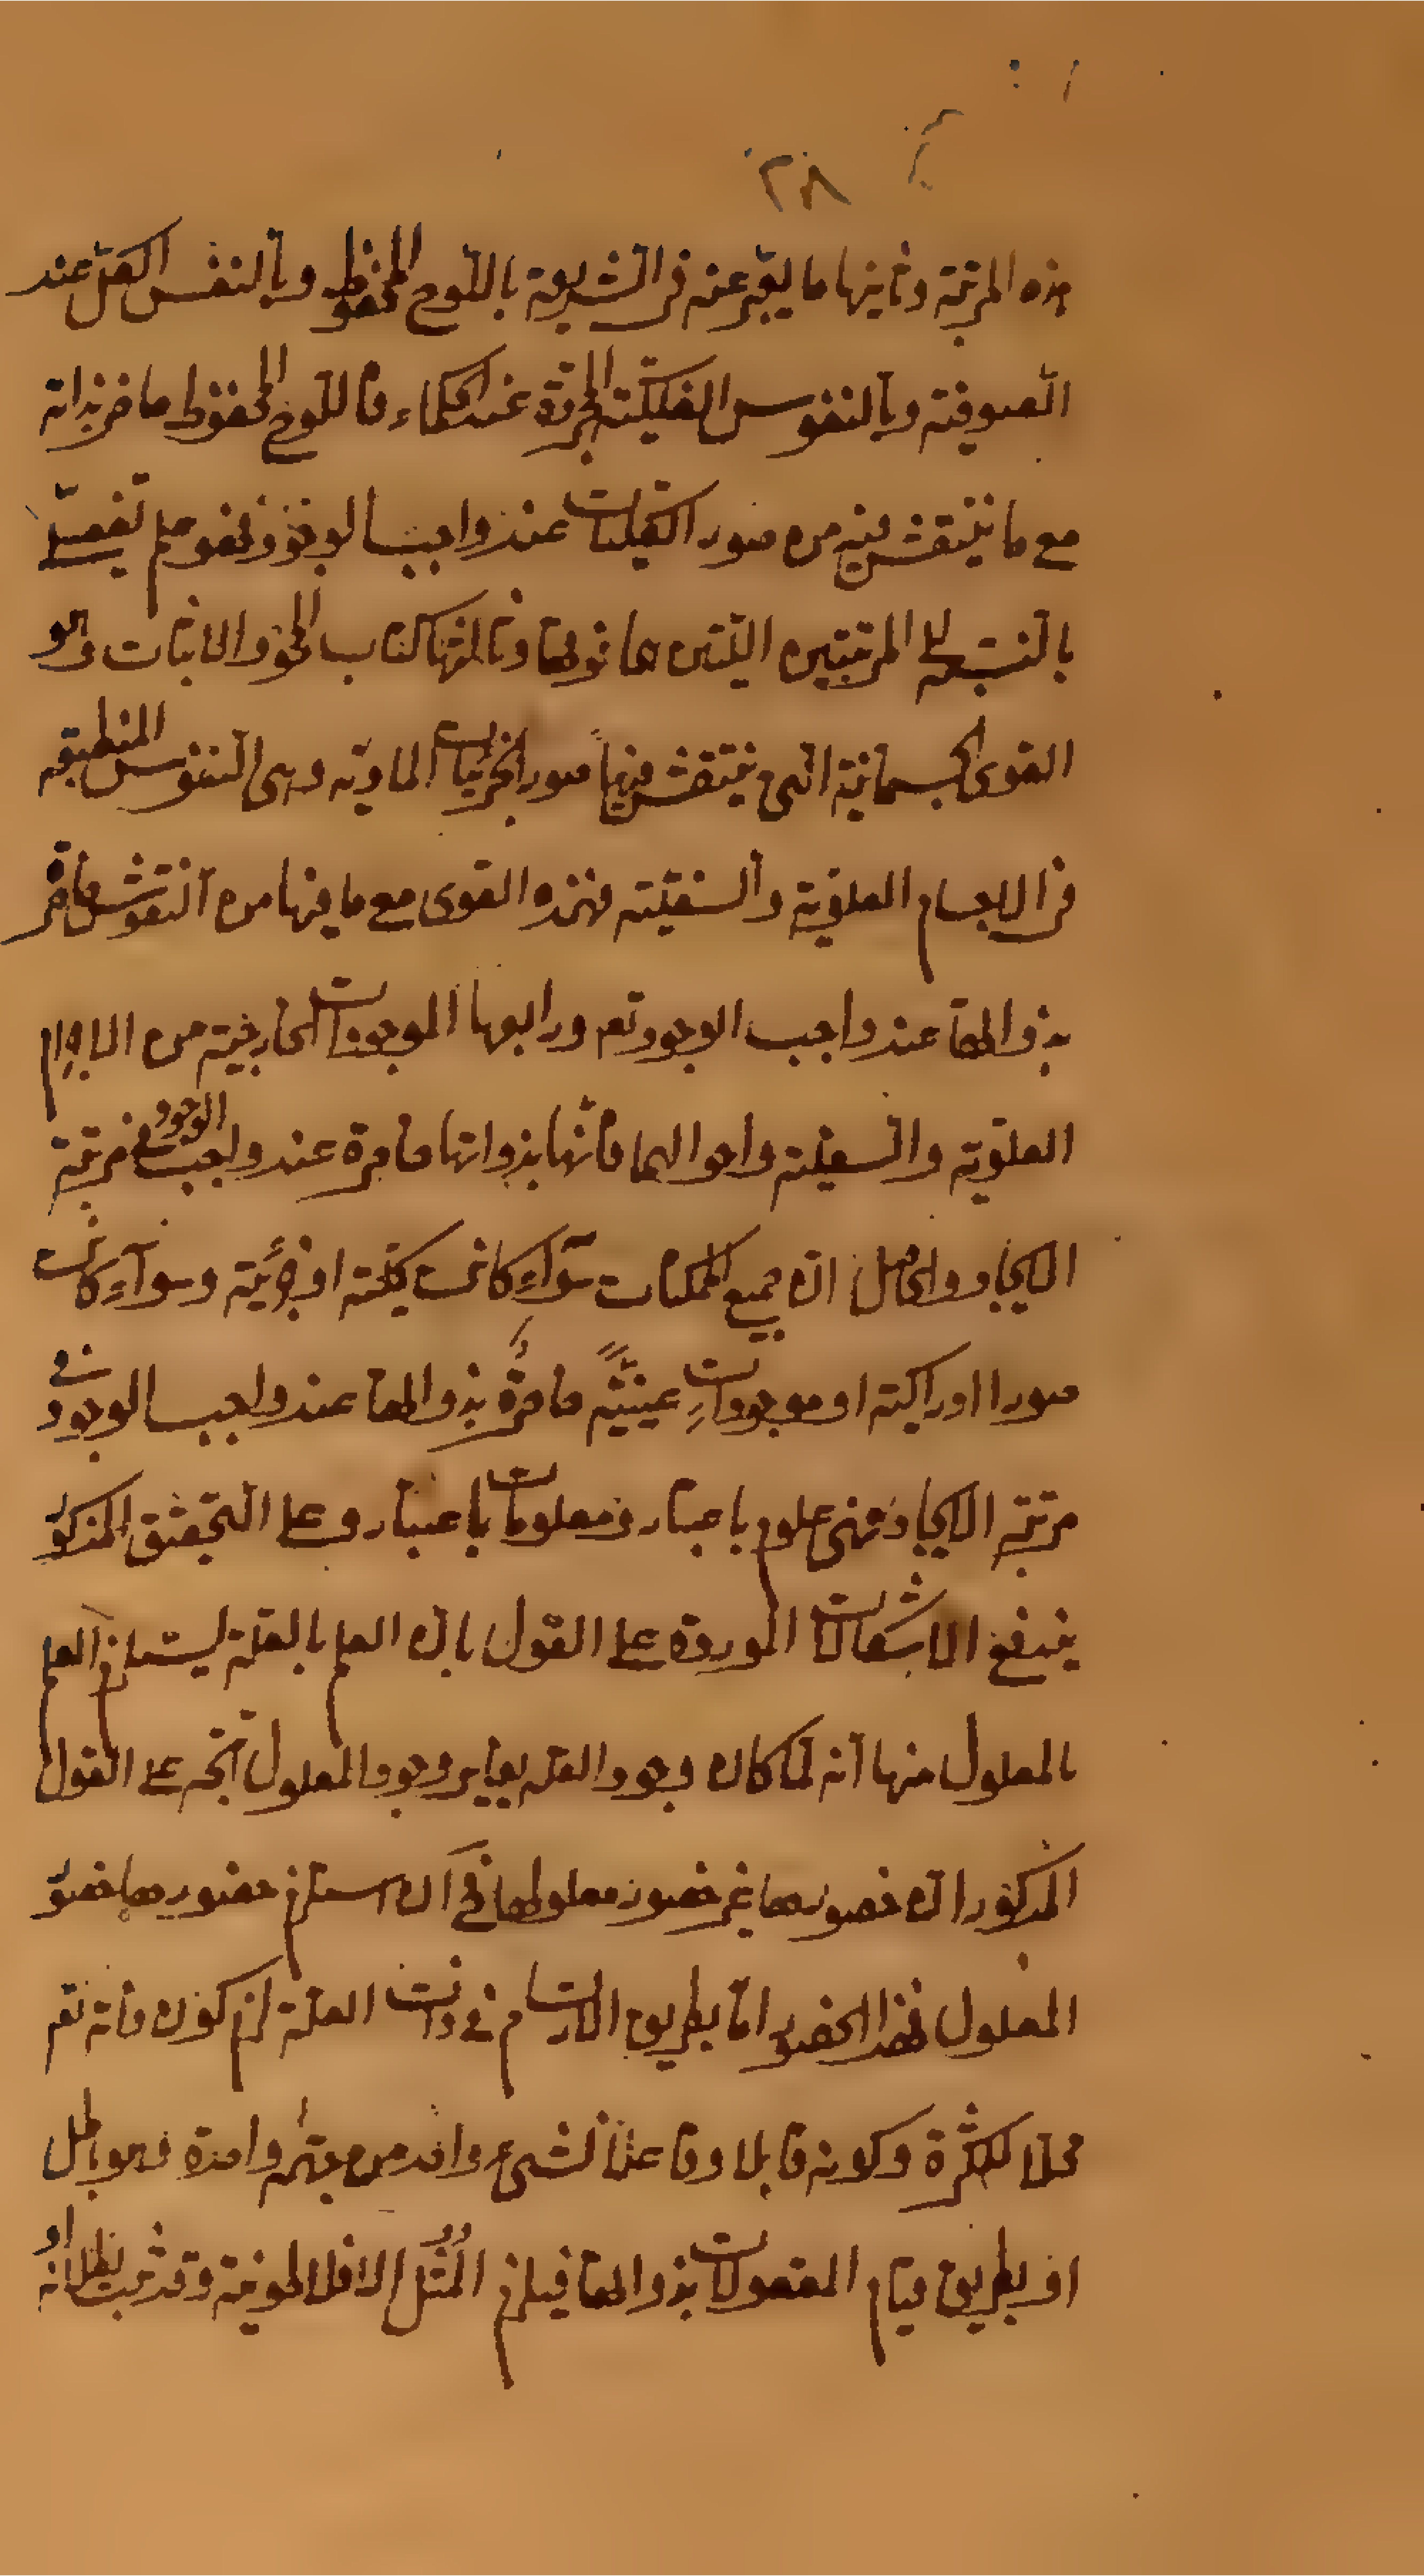 ٢٨
هذه المرتبة وثانيها ما يعبر عنه في الشريعة باللوح المحفوظ وبالنفس الكل عند
الصوفية وبالنفوس الفلكية المجردة عند الحكماء فاللوح المحفوظ حاضر بذاته
مع ما ينتقش فيه من صور الكليات عند واجب الوجود فهو علم تفصيلي
بالنسبة الى المرتبتين اللتين هما فوقها وثالثها كتاب المحو والاثبات وهو
القوى الجسمانية التي ينتقش فيها صور الجزئيات المادية وهي النفوس المنطبعة
في الاجسام العلوية والسفلية فهذه القوى مع ما فيها من النقوش حاضرة
بذواتها عند واجب الوجود تعم ورابعها الموجودات الخارجية من الاجرام
العلوية والسفلية واحوالهما فانها بذواتها حاضرة عند واجب الوجود في مرتبة
الايجاد والحاصل ان جميع الممكنات سواء كانت كلية او جزئية وسواء كانت
صورا ادراكية او موجودات عينية حاضرة بذواتها عند واجب الوجود في
مرتبة الايجاد فهي علوم باعتبار ومعلومات باعتبار وعلى التحقيق المذكور
يندفع الاشكالات الموردة على القول بان العلم بالعلة يستلزم العلم
بالمعلول منها انه لما كان وجود العلة يغاير وجود المعلول اتجه على القول
المذكور ان حضورها غير حضور معلولها فح ان استلزم حضورها حضور
المعلول فهذا الحضور اما بطريق الارتسام في ذات العلة لزم كون ذاته تعم
محلا للكثرة وكونه قابلا وفاعلا لشيء واحد من جهة واحدة وهو باطل
او بطريق قيام المعقولات بذواتها فيلزم المثل الافلاطونية وقد ثبت بطلانه او